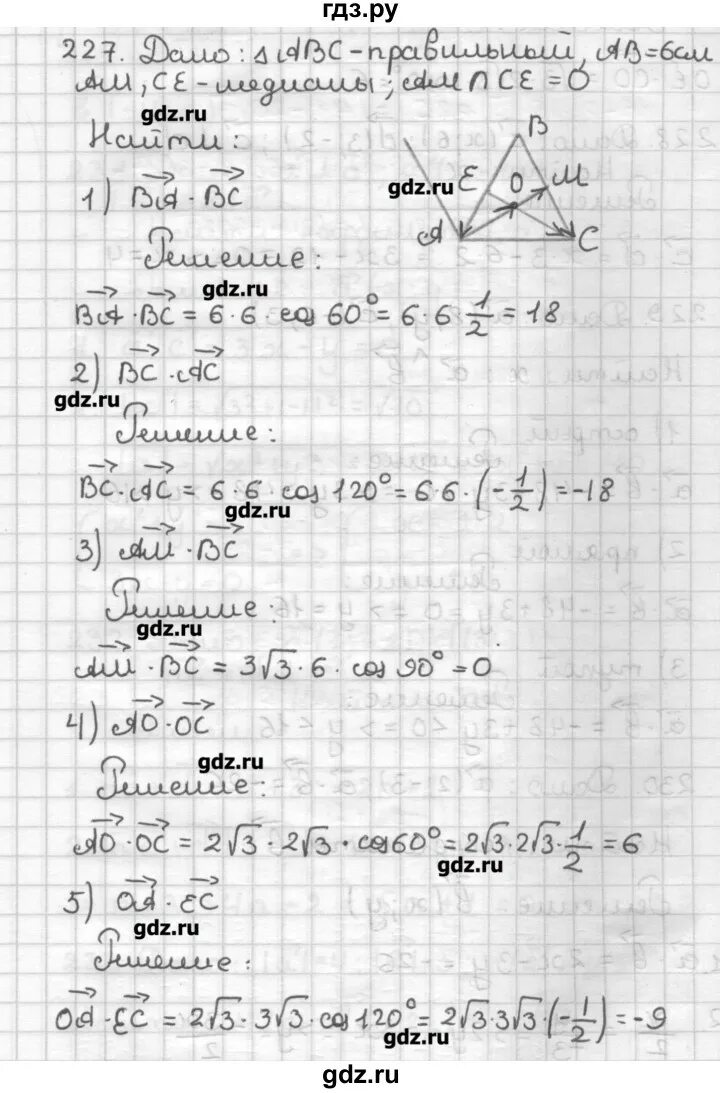 гдз.ру
227. Дано: △ABC - правильный, AB=6см
AM, CE - медианы, AM∩CE=O
gdz.ru
Найти:
B
E
O
M
A
C
gdz.ru
1) BA⃗ · BC⃗
Решение:
gdz.ru
BA⃗ · BC⃗ = 6·6 cos 60° = 6·6·1/2 = 18
2) BC⃗ · AC⃗
gdz.ru
Решение:
BC⃗ · AC⃗ = 6·6·cos 120° = 6·6·(-1/2) = -18
gdz.ru
3) AM⃗ · BC⃗
Решение:
gdz.ru
AM⃗ · BC⃗ = 3√3·6·cos 90° = 0
4) AO⃗ · OC⃗
gdz.ru
Решение:
AO⃗ · OC⃗ = 2√3·2√3·cos 60° = 2√3·2√3·1/2 = 6
gdz.ru
5) OA⃗ · EC⃗
gdz.ru
Решение:
OA⃗ · EC⃗ = 2√3·3√3·cos 120° = 2√3·3√3·(-1/2) = -9
gdz.ru
gdz.ru